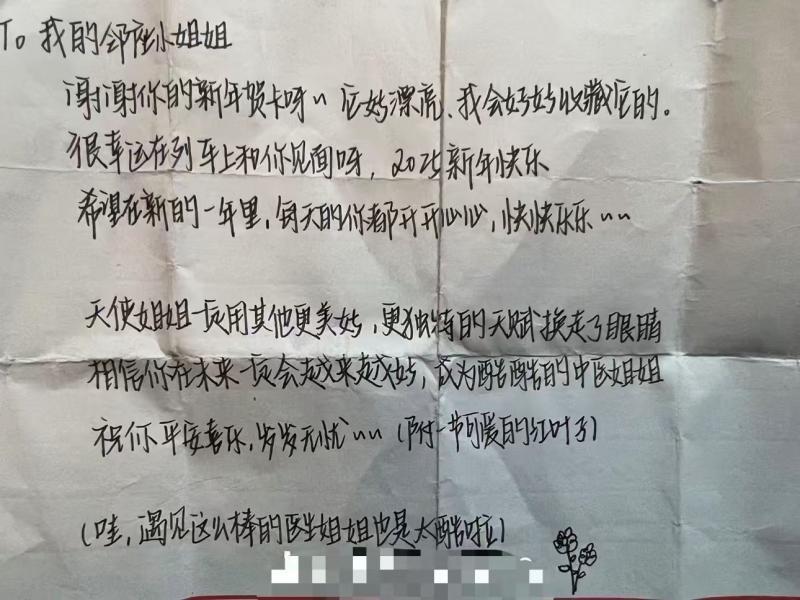 To 我的邻座小姐姐
谢谢你的新年贺卡呀~ 它好漂亮、我会好好收藏它的。
很幸运在列车上和你见面呀, 2025新年快乐
希望在新的一年里, 每天的你都开开心心, 快快乐乐~~
天使姐姐一定用其他更美好, 更独特的天赋换走了眼睛
相信你在未来一定会越来越好, 成为酷酷的中医姐姐
祝你平安喜乐, 岁岁无忧~~ (附一节可爱的红叶子)
(哇, 遇见这么棒的医生姐姐也是太酷啦)